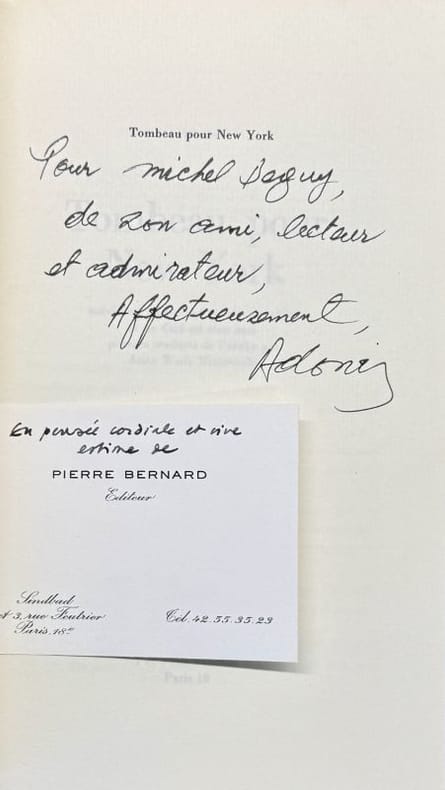 Tombeau pour New York
Pour michel Deguy,
de son ami, lecteur
et admirateur,
Affectueusement,
Adonis
En pensée cordiale et vive
estime de
PIERRE BERNARD
Editeur
Sindbad
et 3, rue Feutrier
Paris. 18e
Tél. 42.55.35.23
Paris 18